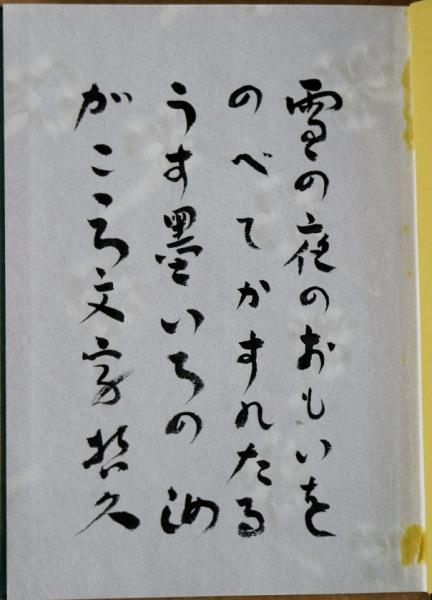 雪の夜のおもいを
のべてかすれたる
うす墨いろの汝
がこゝろ文字 哲久